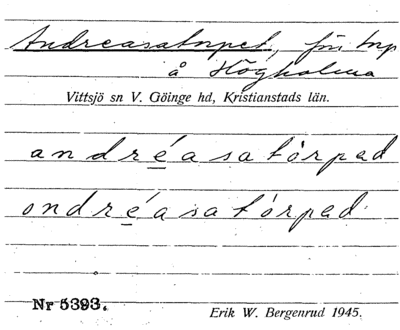 Andreasatorpet, förr torp
å Högholma
Vittsjö sn V. Göinge hd, Kristianstads län.
andréasatòrpad
ondréasatórpad
Nr 5393.
Erik W. Bergenrud 1945.